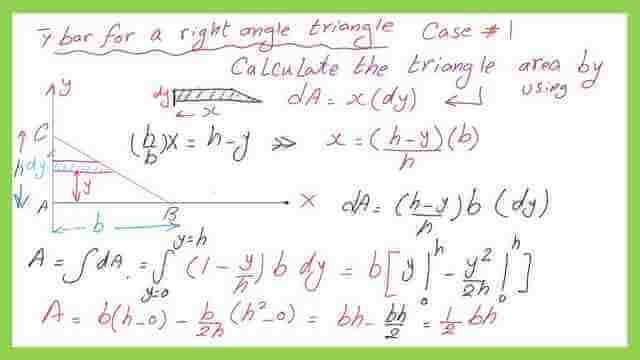 ȳ bar for a right angle triangle Case #1
Calculate the triangle area by using
dy x dA = x(dy)
(h/b)x = h-y >> x = (h-y)/h (b)
y
C
h dy y
A B x
b
dA = (h-y)/h b (dy)
A = ∫dA = ∫_{y=0}^{y=h} (1 - y/h) b dy = b[y|_0^h - y²/2h|_0^h
A = b(h-0) - b/2h (h²-0) = bh - bh/2 = 1/2 bh